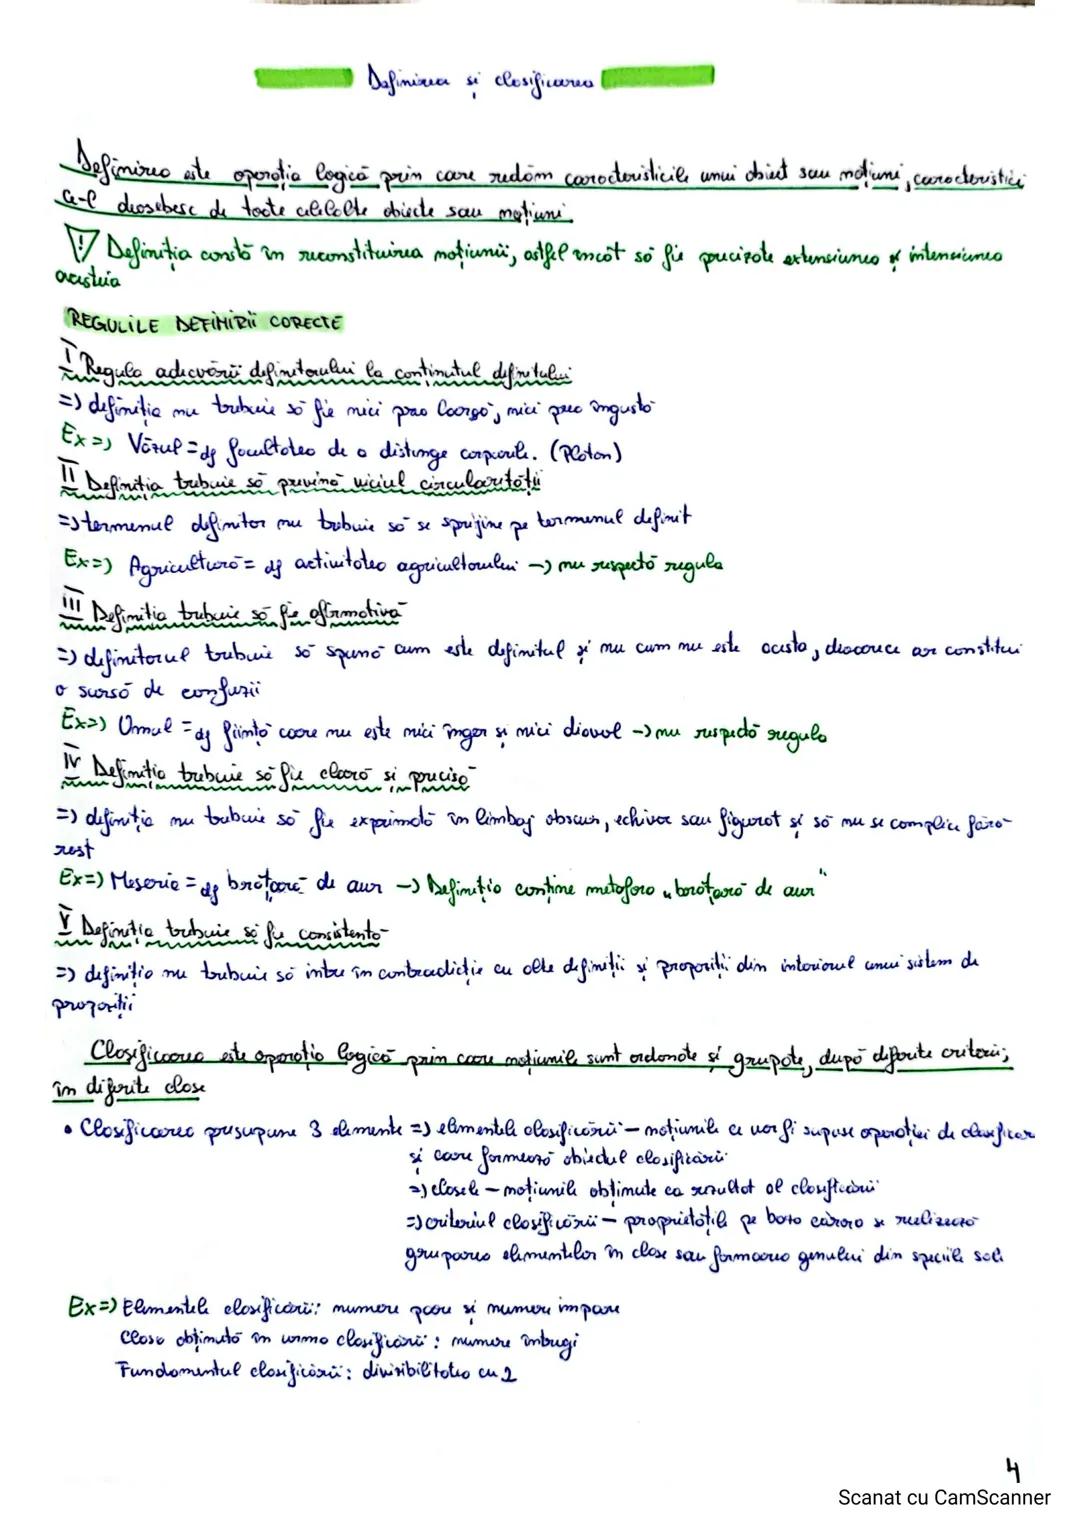 Definirea și clasificarea
Definirea este operația logică prin care redăm caracteristicile unui obiect sau noțiuni, caracteristici
ce-l deosebesc de toate celelalte obiecte sau noțiuni.
! Definiția constă în reconstituirea noțiunii, astfel încât să fie precizate extensiunea și intensiunea
acesteia
REGULILE DEFINIRII CORECTE
I Regula adecvării definitorului la conținutul definitului
=) definiția nu trebuie să fie nici prea largă, nici prea îngustă
Ex =) Văzul = df facultatea de a distinge corpurile. (Platon)
II Definiția trebuie să prevină viciul circularității
=) termenul definitor nu trebuie să se sprijine pe termenul definit
Ex=) Agricultură = df activitatea agricultorului -) nu respectă regula
III Definiția trebuie să fie afirmativă
=) definitorul trebuie să spună cum este definitul și nu cum nu este acesta, deoarece ar constitui
o sursă de confuzii
Ex=) Omul = df ființă care nu este nici înger și nici diavol -) nu respectă regula
IV Definiția trebuie să fie clară și precisă
=) definiția nu trebuie să fie exprimată în limbaj obscur, echivoc sau figurat și să nu se complice fără
rost
Ex=) Meseria = df brățară de aur -) Definiția conține metafora „brățară de aur"
V Definiția trebuie să fie consistentă
=) definiția nu trebuie să intre în contradicție cu alte definiții și propoziții din interiorul unui sistem de
propoziții
Clasificarea este operația logică prin care noțiunile sunt ordonate și grupate, după diferite criterii,
în diferite clase
• Clasificarea presupune 3 elemente =) elementele clasificării - noțiunile ce vor fi supuse operației de clasificare
și care formează obiectul clasificării
=) clasele - noțiunile obținute ca rezultat al clasificării
=) criteriul clasificării - proprietățile pe baza cărora se realizează
gruparea elementelor în clase sau formarea genului din speciile sale
Ex=) Elementele clasificării: numere pare și numere impare
Clasa obținută în urma clasificării: numere întregi
Fundamentul clasificării: divizibilitatea cu 2
4
Scanat cu CamScanner